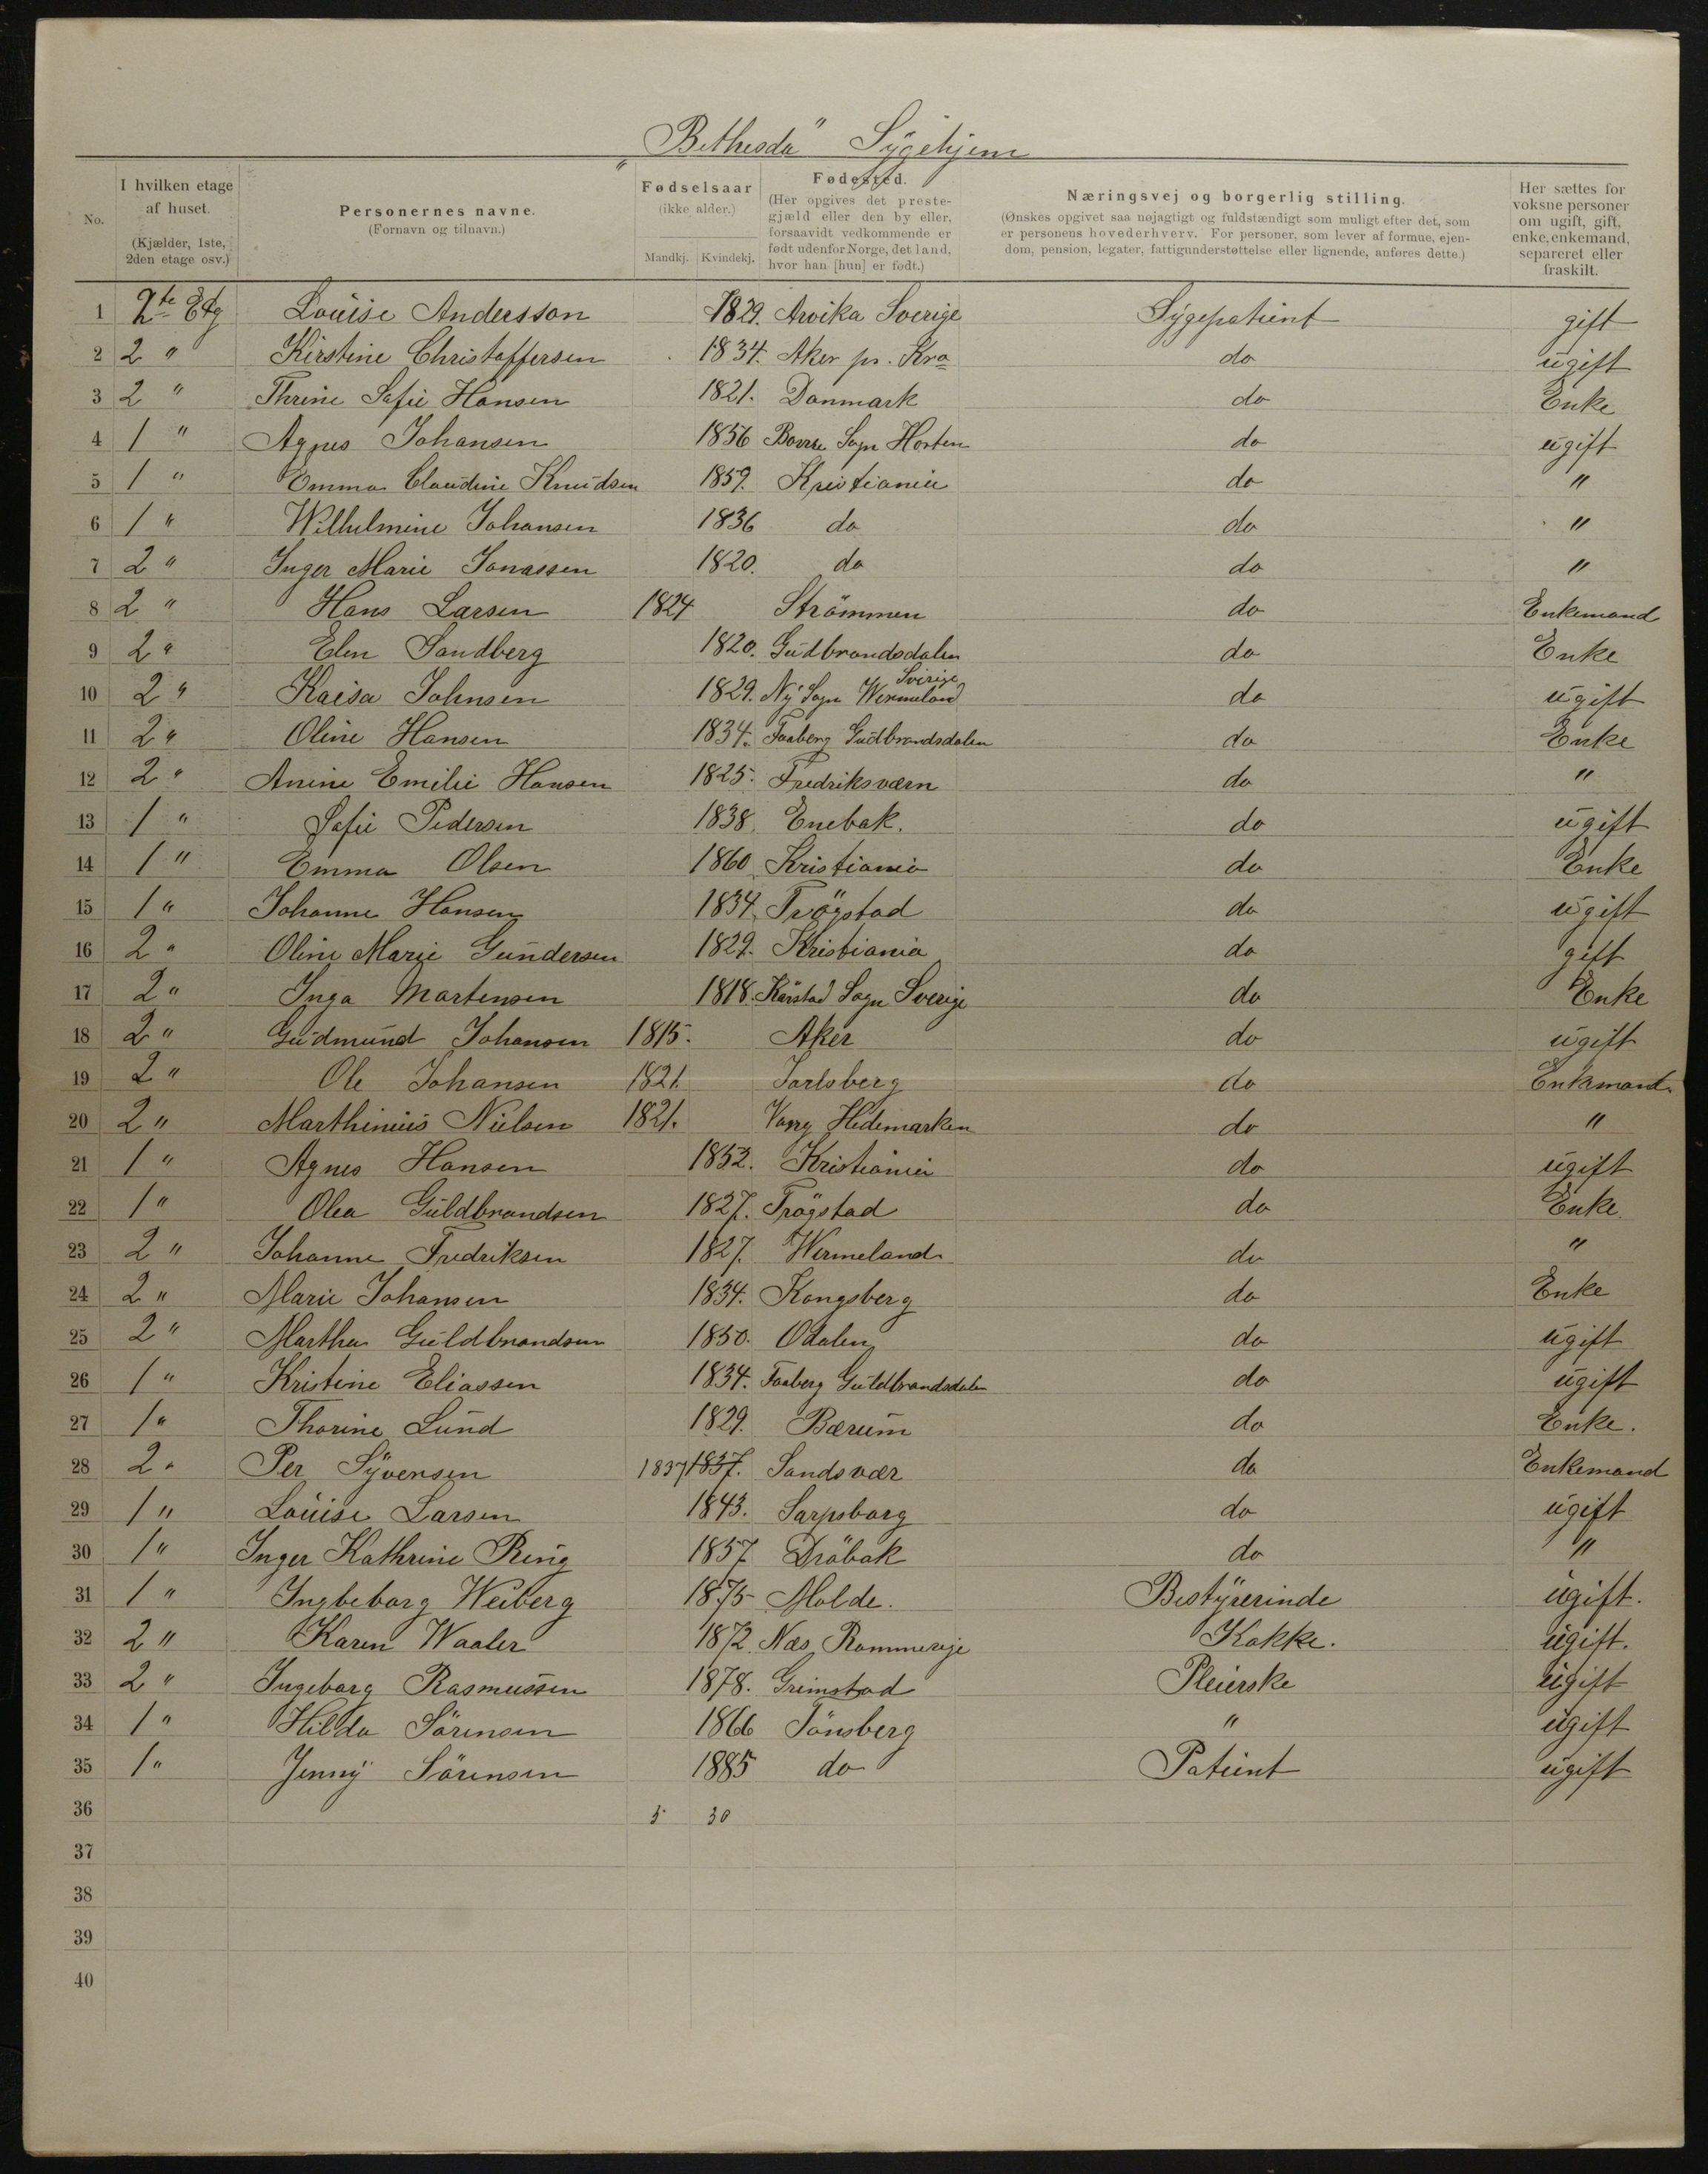 "Bethesda" Sÿgehjem
No.
I hvilken etage
af huset.
(Kjælder, 1ste,
2den etage osv.)
Personernes navne.
(Fornavn og tilnavn.)
Fødselsaar
(ikke alder.)
Mandkj. Kvindekj.
Fødested.
(Her opgives det preste-
gjæld eller den by eller,
forsaavidt vedkommende er
født udenfor Norge, det land,
hvor han [hun] er født.)
Næringsvej og borgerlig stilling.
(Ønskes opgivet saa nøjagtigt og fuldstændigt som muligt efter det, som
er personens hovederhverv. For personer, som lever af formue, ejen-
dom, pension, legater, fattigunderstøttelse eller lignende, anføres dette.)
Her sættes for
voksne personer
om ugift, gift,
enke, enkemand,
separeret eller
fraskilt.
1 2te Etg Louise Andersson 1829. Arvika Sverige Sÿgepatient gift
2 2 " Kirstine Christoffersen 1834. Aker pr. Kra do ugift
3 2 " Thrine Sofie Hansen 1821. Danmark do Enke
4 1 " Agnes Johansen 1856 Borre Sogn Horten do ugift
5 1 " Emma Claudine Knudsen 1859. Kristiania do "
6 1 " Wilhelmine Johansen 1836 do do "
7 2 " Inger Marie Jonassen 1820. do do "
8 2 " Hans Larsen 1824 Strömmen do Enkemand
9 2 " Elen Sandberg 1820. Gudbrandsdalen do Enke
10 2 " Kaisa Johnsen 1829. Nÿ Sogn Wermeland Sverige do ugift
11 2 " Oline Hansen 1834. Faaberg Gudbrandsdalen do Enke
12 2 " Anine Emilie Hansen 1825. Fredriksværn do "
13 1 " Sofie Pedersen 1838. Enebak. do ugift
14 1 " Emma Olsen 1860 Kristiania do Enke
15 1 " Johanne Hansen 1834. Trögstad do ugift
16 2 " Oline Marie Gundersen 1829. Kristiania do gift
17 2 " Inga Martensen 1818. Sogn Sverige do Enke
18 2 " Gudmund Johansen 1815. Aker do ugift
19 2 " Ole Johansen 1821. Jarlsberg do Enkemand.
20 2 " Marthinius Nielsen 1821. Hedemarken do "
21 1 " Agnes Hansen 1852. Kristiania do ugift
22 1 " Olea Guldbrandsen 1827. Trögstad do Enke.
23 2 " Johanne Fredriksen 1827. Wermeland do "
24 2 " Marie Johansen 1834. Kongsberg do Enke
25 2 " Martha Guldbrandsen 1850. Odalen do ugift
26 1 " Kristine Eliassen 1834. Faaberg Guldbrandsdalen do ugift
27 1 " Thorine Lund 1829. Bærum do Enke.
28 2 " Per Sÿversen 1837 1837. Sandsvær do Enkemand
29 1 " Louise Larsen 1843. Sarpsborg do ugift
30 1 " Inger Kathrine Ring 1857 Dröbak do "
31 1 " Ingbeborg Weiberg 1875 Molde. Bestÿrerinde ugift.
32 2 " Karen Waaler 1872 Næs Rommerige Kokke. ugift.
33 2 " Ingeborg Rasmussen 1878. Grimstad Pleierske ugift
34 1 " Hilda Sörensen 1866 Tönsberg " ugift
35 1 " Jennÿ Sörensen 1885 do Patient ugift
36 5 30
37
38
39
40